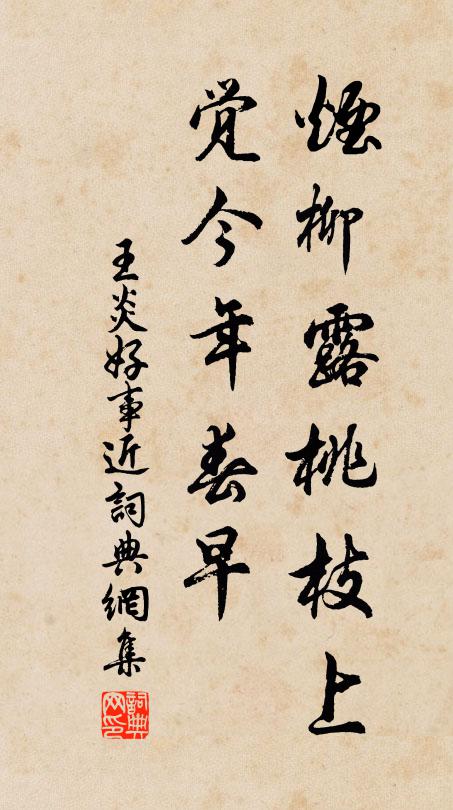 煙柳露桃枝上
覺今年春早
王炎好事近詞典網集
詞典網印